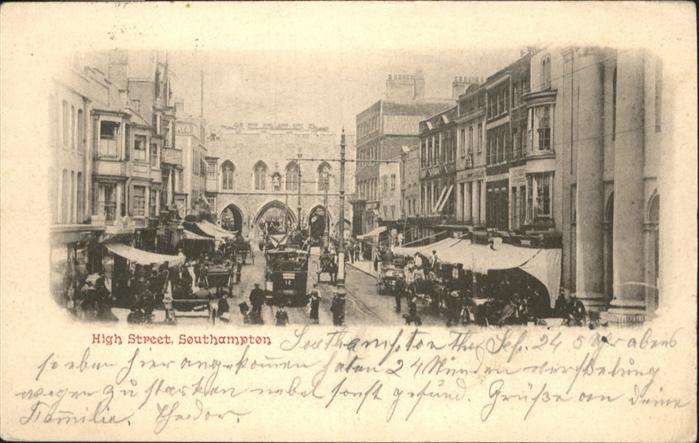 High Street, Southampton
Southampton the Sep. 24 5 Uhr abens
soeben hier angekommen haben 24 Stunden verspetung
wegen zu starken nebel sonst gesund. Grüße an deine
Familie. Theodor.